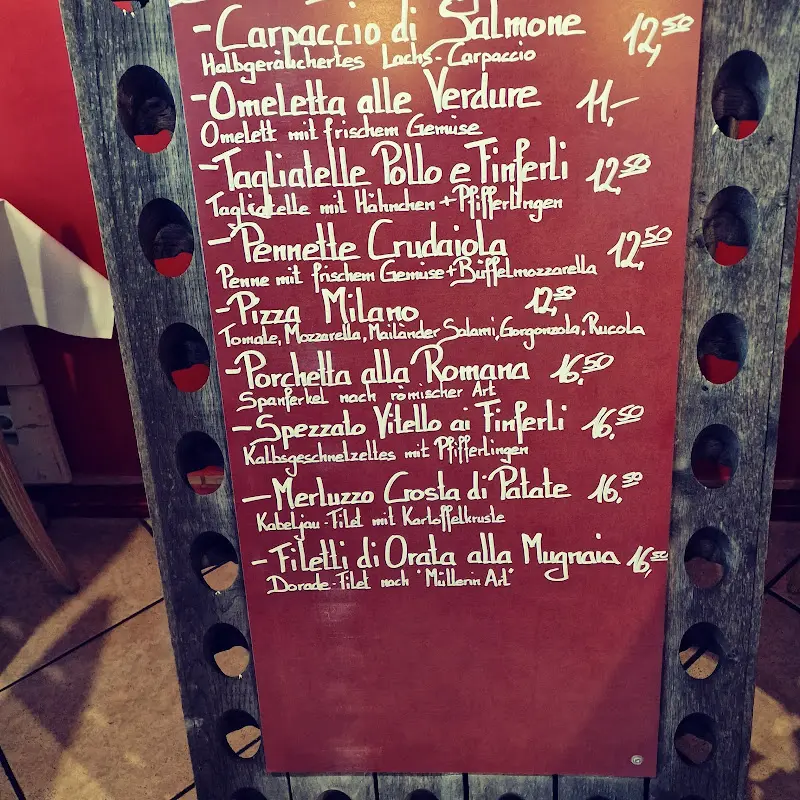 - Carpaccio di Salmone 12,50
Halbgeräuchertes Lachs-Carpaccio
- Omeletta alle Verdure 11,-
Omelett mit frischem Gemüse
- Tagliatelle Pollo e Finferli 12,50
Tagliatelle mit Hähnchen + Pfifferlingen
- Pennette Crudaiola 12,50
Penne mit frischem Gemüse + Büffelmozzarella
- Pizza Milano 12,50
Tomate, Mozzarella, Mailänder Salami, Gorgonzola, Rucola
- Porchetta alla Romana 16,50
Spanferkel nach römischer Art
- Spezzato Vitello ai Finferli 16,50
Kalbsgeschnelzeltes mit Pfifferlingen
- Merluzzo Crosta di Patate 16,50
Kabeljau-Filet mit Kartoffelkruste
- Filetti di Orata alla Mugnaia 16,50
Dorade-Filet nach "Müllerin Art"